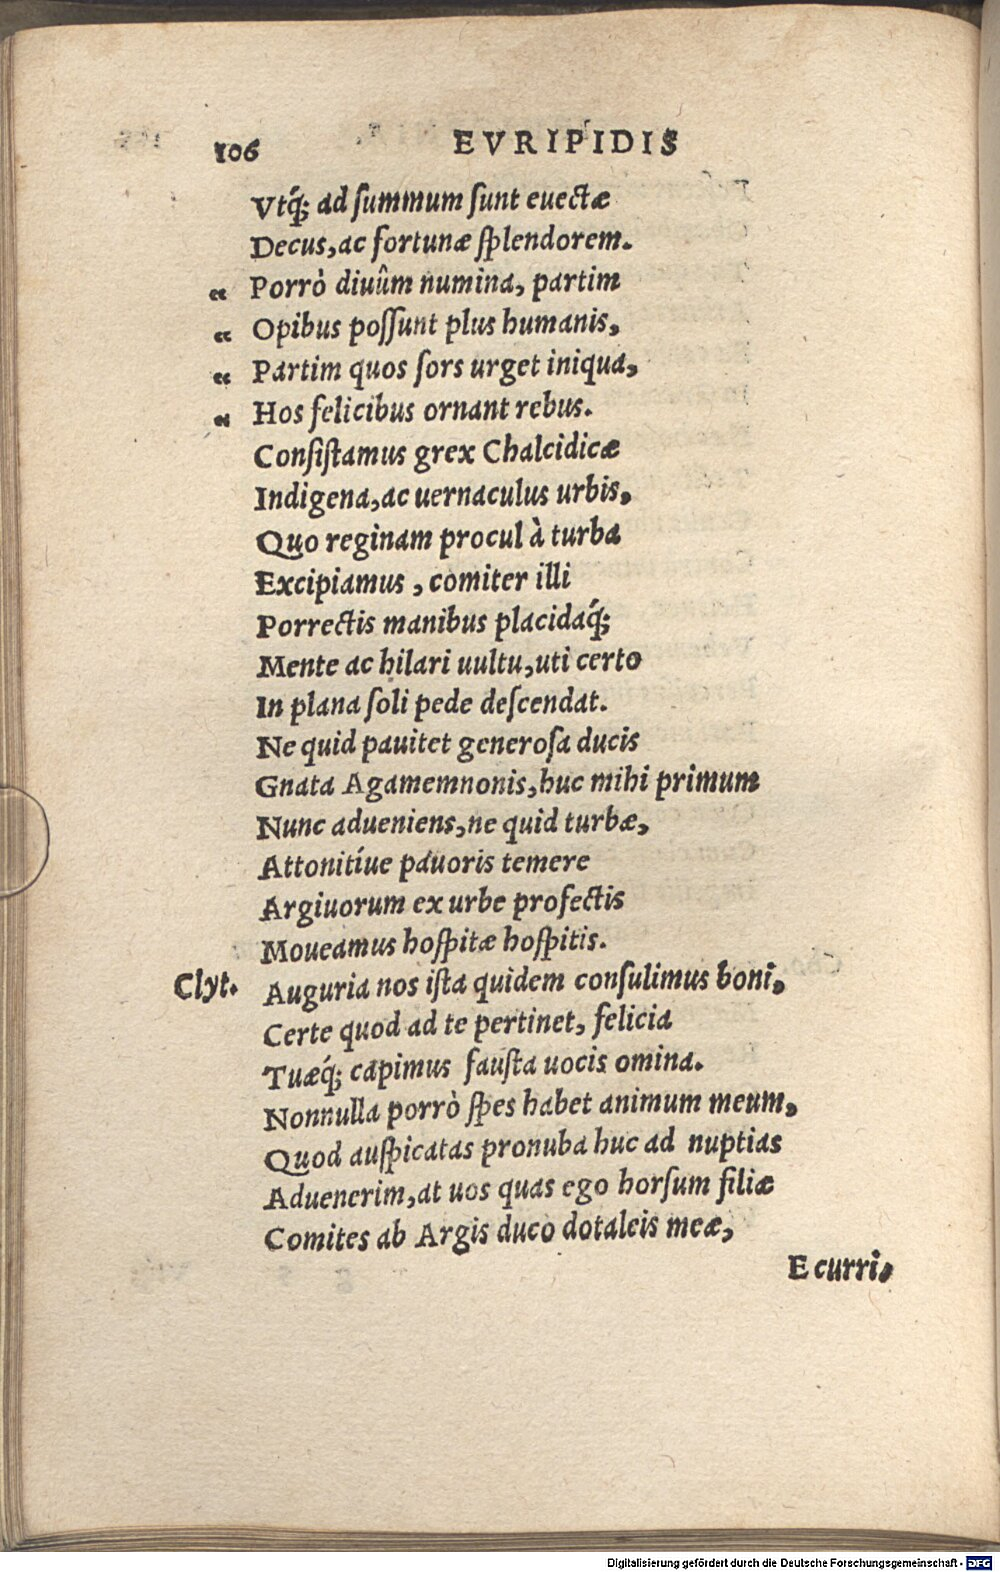 106 EVRIPIDIS
Vtq́; ad ſummum ſunt euectæ
Decus, ac fortunæ ſplendorem.
„ Porrò diuûm numina, partim
„ Opibus poſſunt plus humanis,
„ Partim quos ſors urget iniqua,
„ Hos felicibus ornant rebus.
Conſiſtamus grex Chalcidicæ
Indigena, ac uernaculus urbis,
Quo reginam procul à turba
Excipiamus, comiter illi
Porrectis manibus placidaq́;
Mente ac hilari uultu, uti certo
In plana ſoli pede deſcendat.
Ne quid pauitet generoſa ducis
Gnata Agamemnonis, huc mihi primum
Nunc adueniens, ne quid turbæ,
Attonitíue pauoris temere
Argiuorum ex urbe profectis
Moueamus hoſpitæ hoſpitis.
Clyt. Auguria nos iſta quidem conſulimus boni,
Certe quod ad te pertinet, felicia
Tuæq́; capimus fauſta uocis omina.
Nonnulla porrò ſpes habet animum meum,
Quod auſpicatas pronuba huc ad nuptias
Aduenerim, at uos quas ego horſum filiæ
Comites ab Argis duco dotaleis meæ,
E curri,
Digitalisierung gefördert durch die Deutsche Forschungsgemeinschaft - DFG